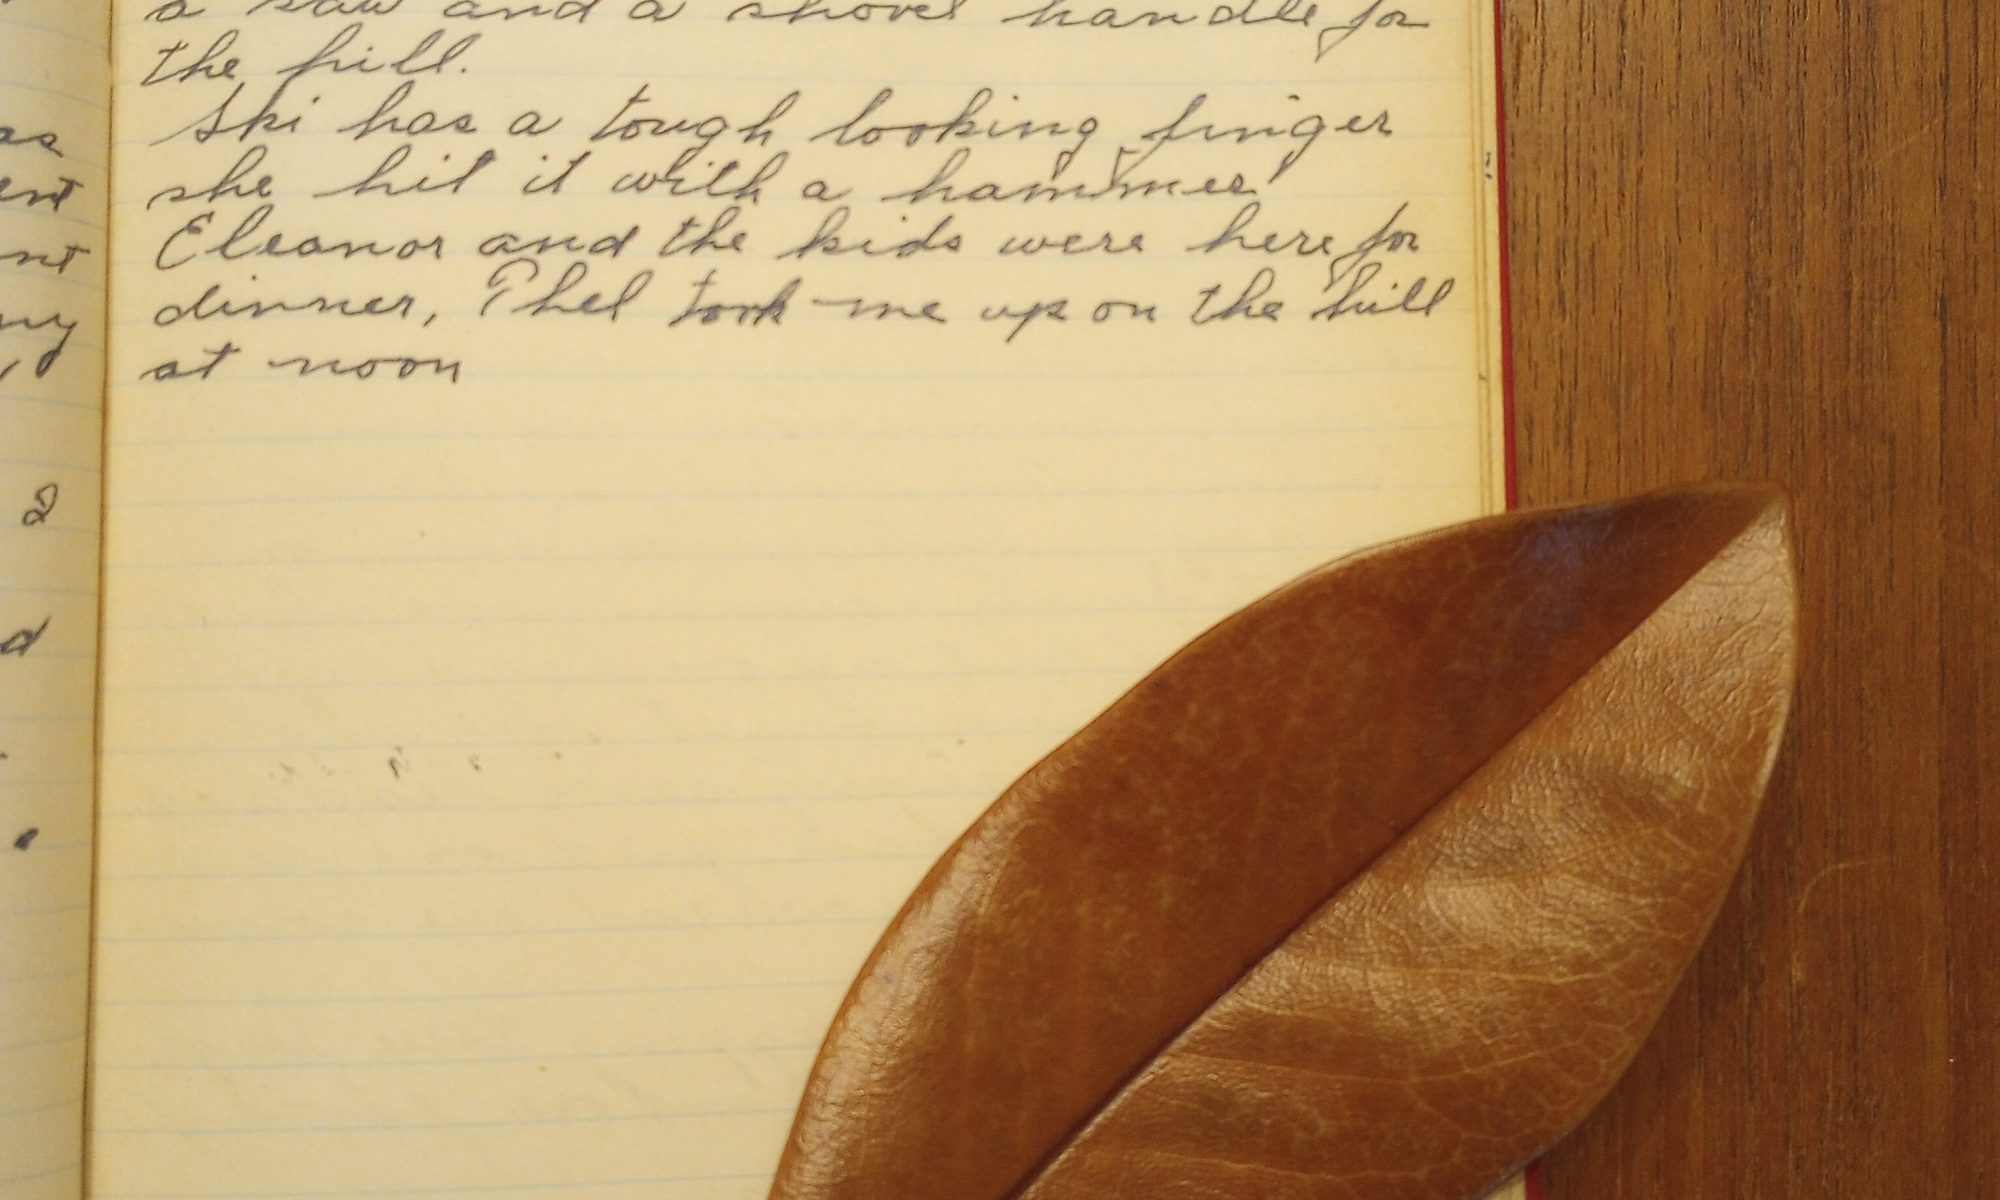 a saw and a shovel handle for
the hill.
Ski has a tough looking finger
she hit it with a hammer
Eleanor and the kids were here for
dinner, Phel took me up on the hill
at noon
as
ent
nt
ny
d